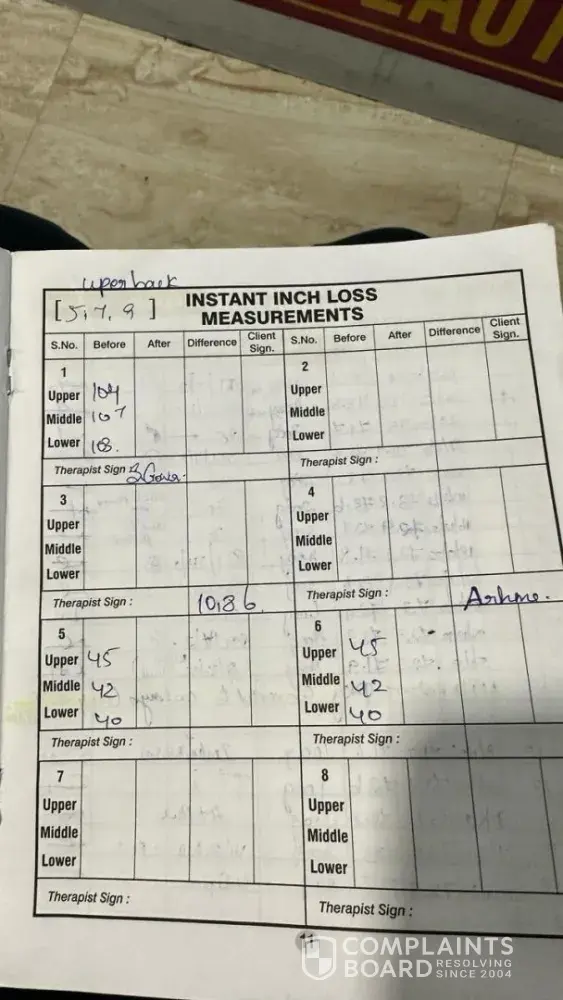 uper back
[5,7,9] INSTANT INCH LOSS
MEASUREMENTS
S.No. Before After Difference Client Sign. S.No. Before After Difference Client Sign.
1 2
Upper 104 Upper
Middle 107 Middle
Lower 108. Lower
Therapist Sign : Therapist Sign :
3 4
Upper Upper
Middle Middle
Lower Lower
Therapist Sign : 10,8 6. Therapist Sign :
5 6
Upper 45 Upper 45
Middle 42 Middle 42
Lower 40 Lower 40
Therapist Sign : Therapist Sign :
7 8
Upper Upper
Middle Middle
Lower Lower
Therapist Sign : Therapist Sign :
11
COMPLAINTS
BOARD RESOLVING
SINCE 2004